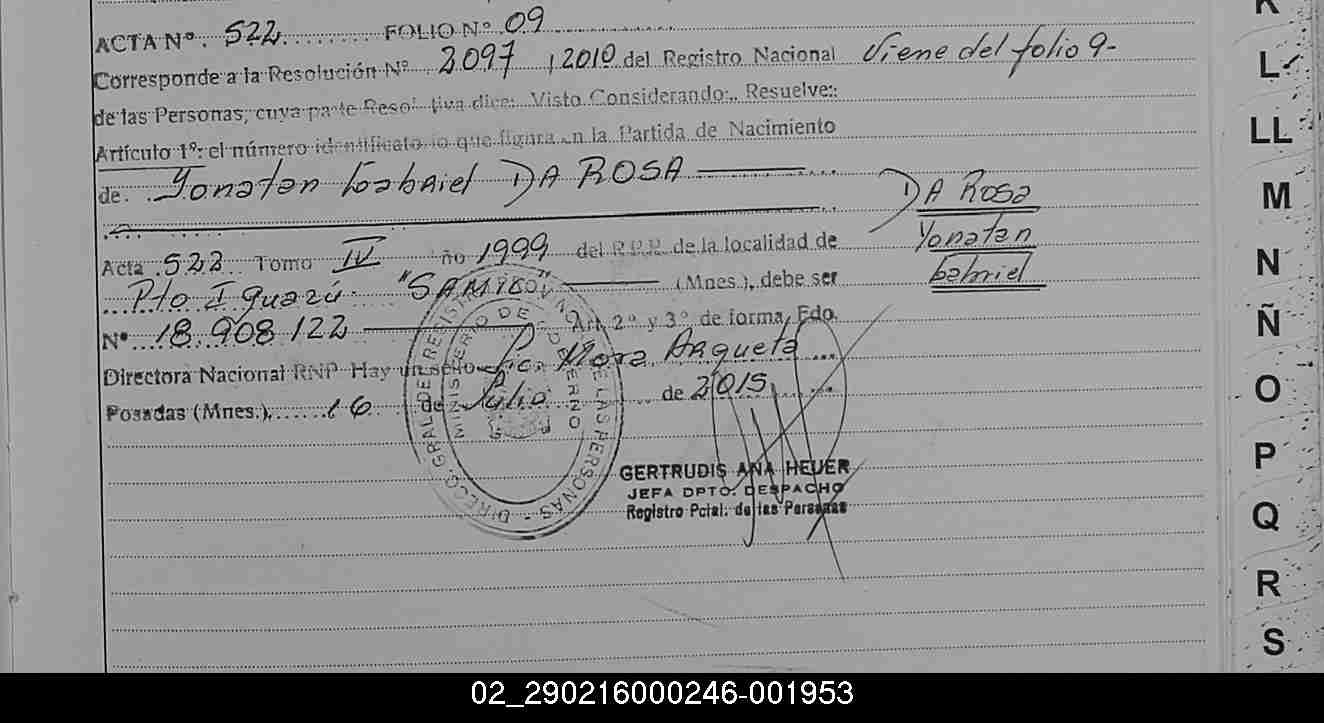 ACTA Nº. 522 FOLIO Nº 09
Corresponde a la Resolución Nº 2097 / 2010 del Registro Nacional
Viene del folio 9-
de las Personas, cuya parte Resolutiva dice: Visto Considerando: Resuelve:
Artículo 1º: el número identificatorio que figura en la Partida de Nacimiento
de Yonatan Gabriel DA ROSA
DA ROSA
Yonatan
Gabriel
Acta 522 Tomo IV ño 1999 del R.P.P. de la localidad de
Pto Iguazú "SAMIC" (Mnes.), debe ser
Nº 18.908.122 Art. 2º y 3º de forma, Fdo.
Directora Nacional RNP Hay un sello Lic. Mora Arqueta
Posadas (Mnes.), 16 de Julio de 2015
DIREC. GRAL DE REGIST PROVIN DE LAS PERSONAS
MINISTERIO DE GOBIERNO
GERTRUDIS ANA HEUER
JEFA DPTO. DESPACHO
Registro Pcial. de las Personas
K
L
LL
M
N
Ñ
O
P
Q
R
S
02_290216000246-001953